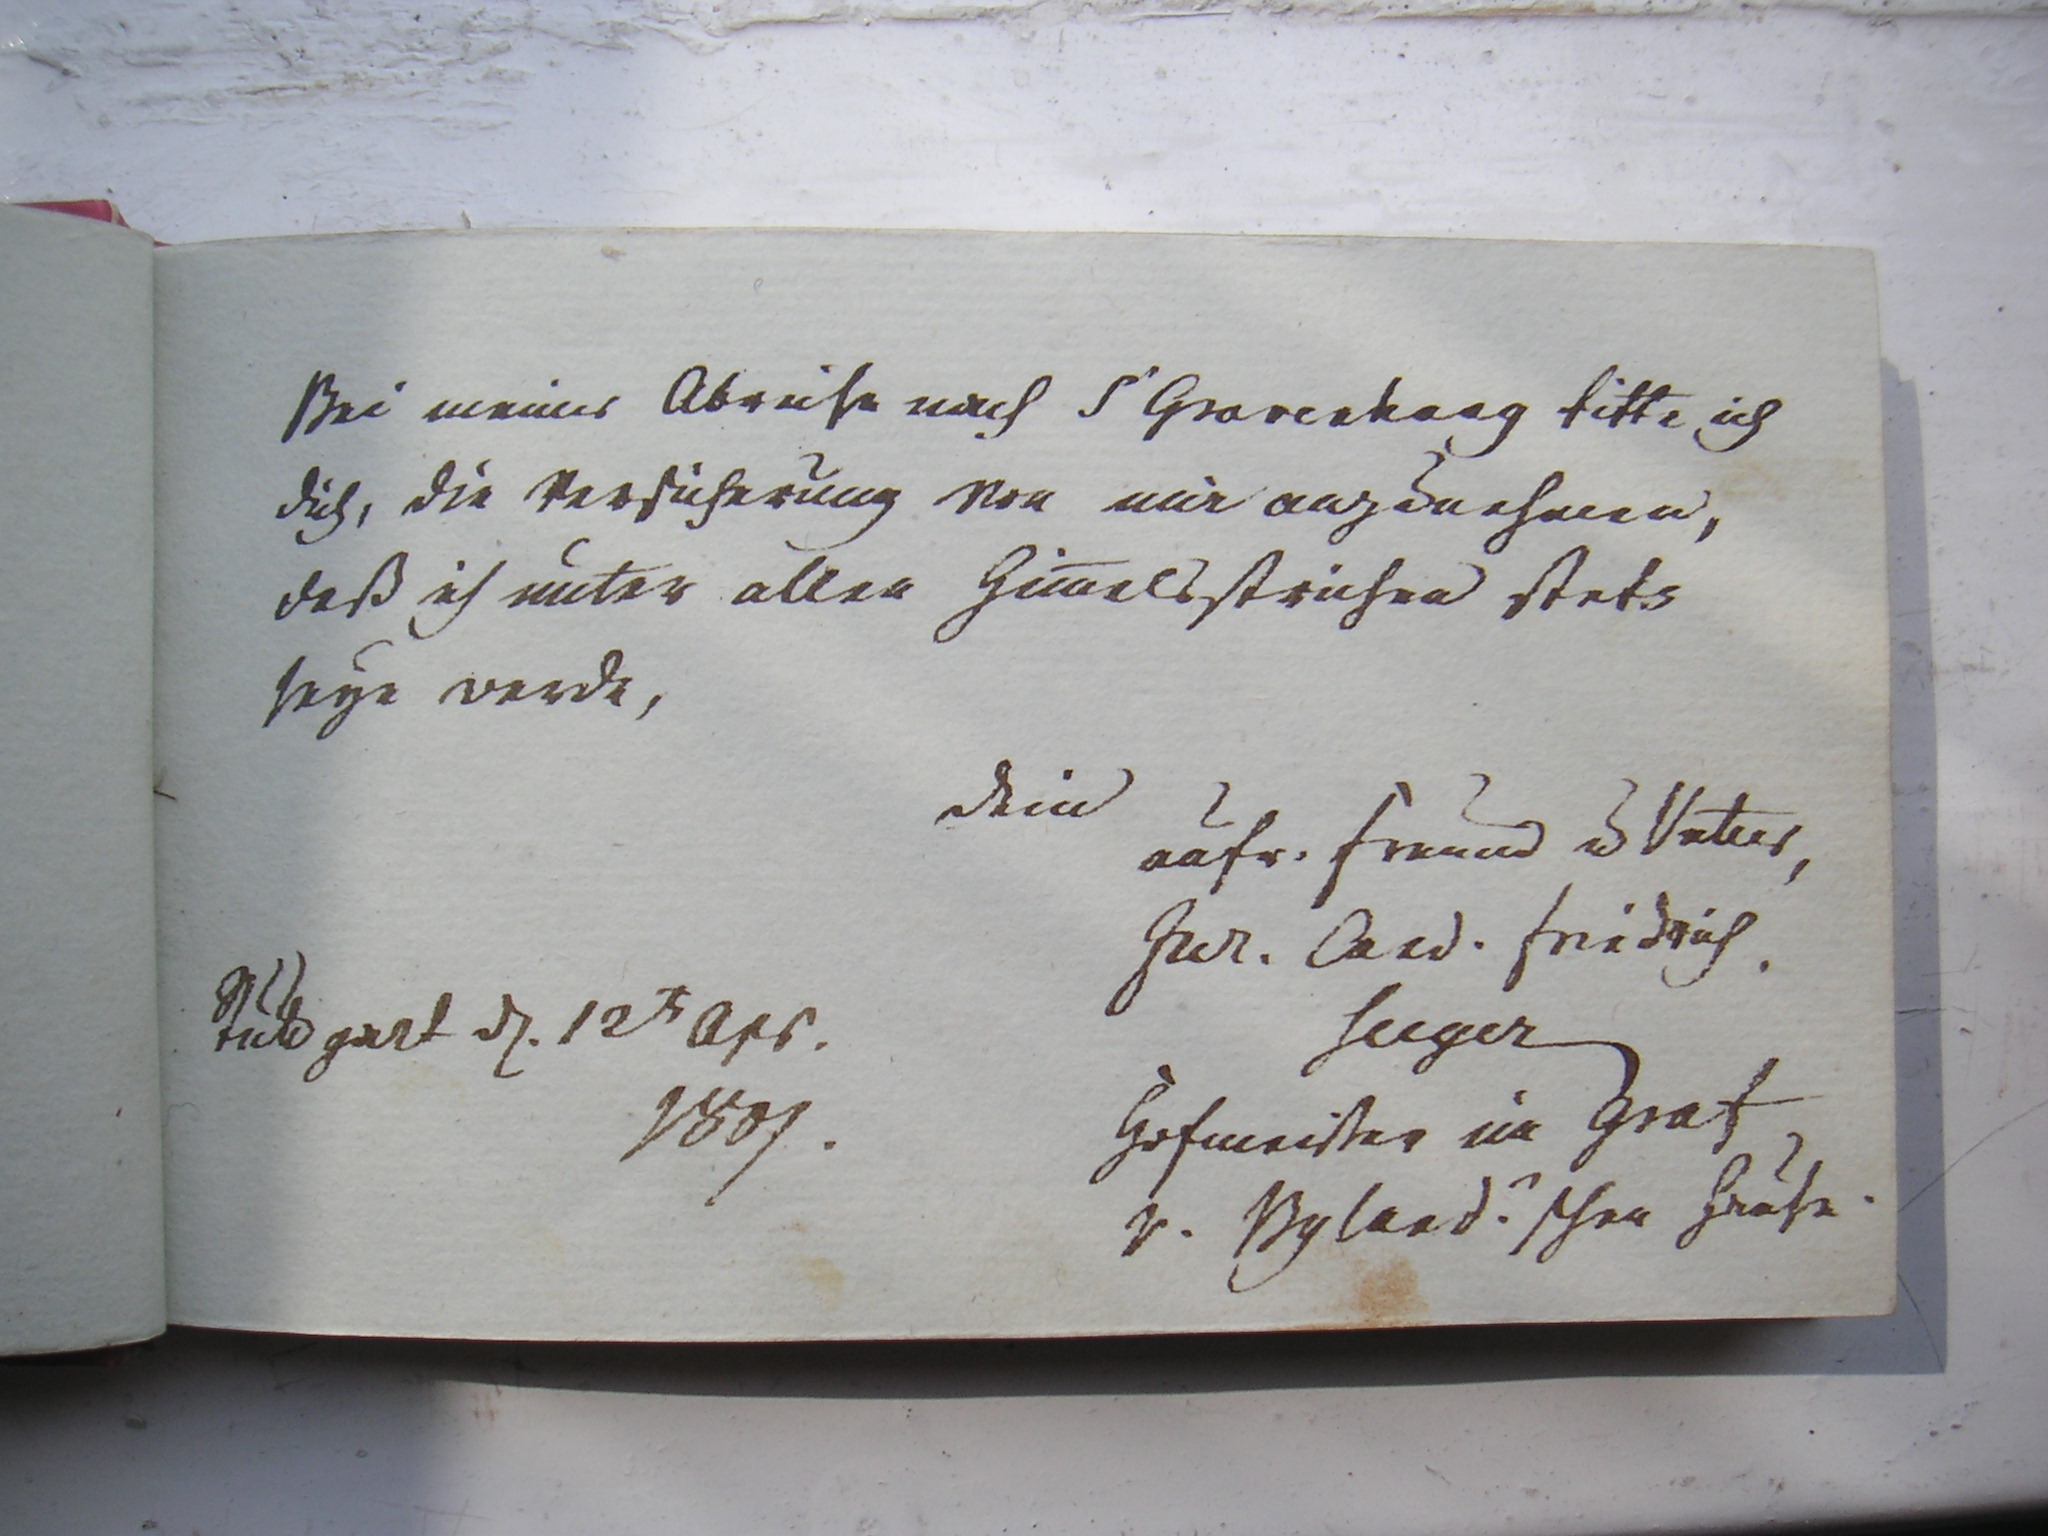 Bei meiner Abreise nach S' Gravenhaag bitte ich
dich, die Versicherung von mir anzunehmen,
daß ich unter allen Him̄elsstrichen stets
seyn werde,
dein
aufr. Freund u Vetter,
Jur. Cand. Friedrich.
Seeger
Hofmeister im Graf
v. Byland'schen Hause.
Stuttgart d. 12t Apr.
1801.